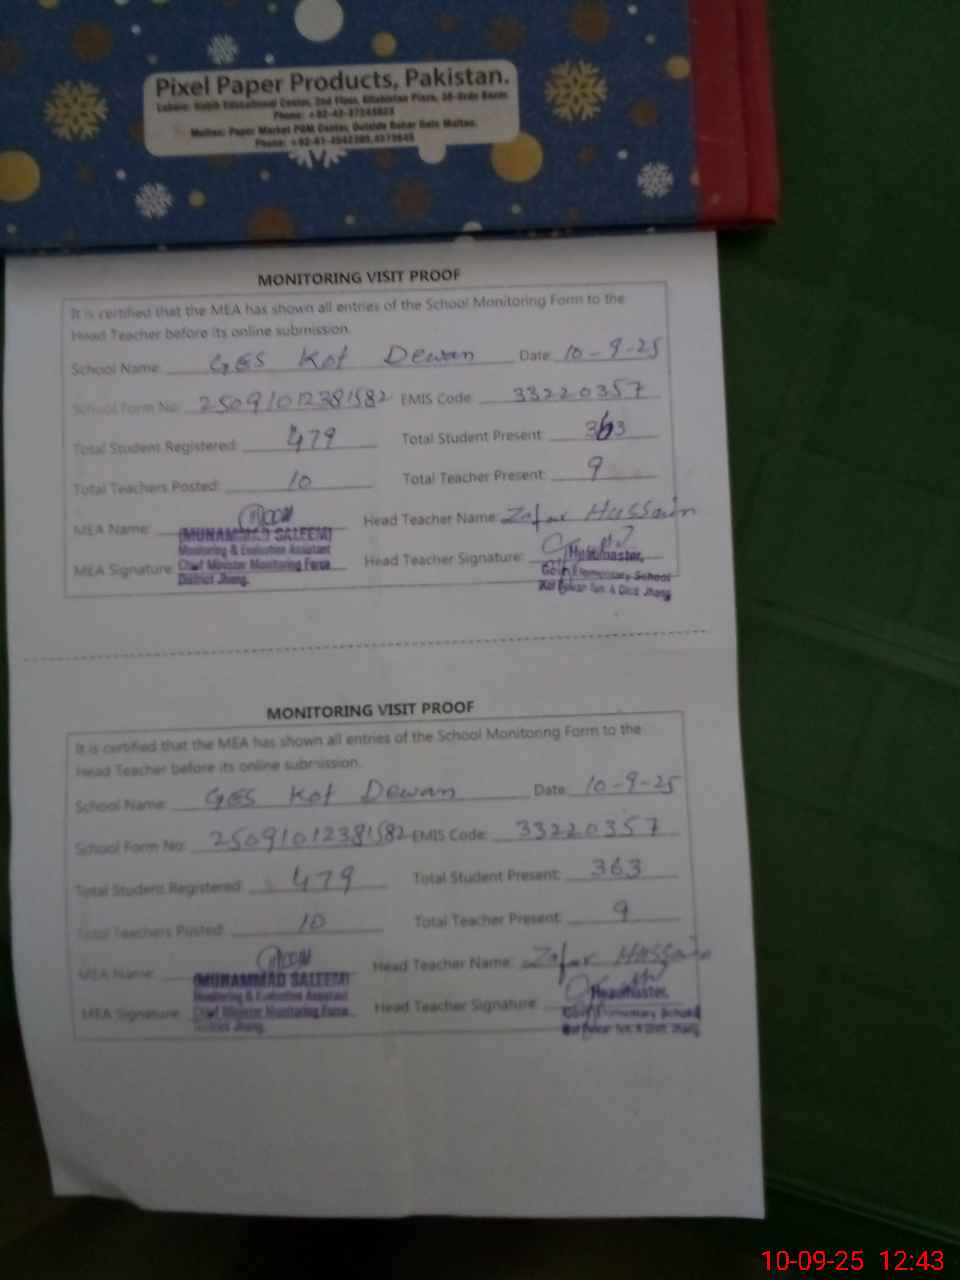 Pixel Paper Products, Pakistan.
Lahore: Habib Educational Center, 2nd Floor, Plaza, 38-Urdu Bazar.
Phone:
Multan: Paper Market PGM Center, Outside Bohar Gate Multan.
Phone:
MONITORING VISIT PROOF
It is certified that the MEA has shown all entries of the School Monitoring Form to the
Head Teacher before its online submission.
School Name: GES Kot Dewan Date: 10-9-25
School Form No: 25091012381582 EMIS Code: 33220357
Total Student Registered: 479 Total Student Present: 363
Total Teachers Posted: 10 Total Teacher Present: 9
MEA Name: Head Teacher Name: Zafar Hussain
(MUHAMMAD SALEEM)
Monitoring & Evaluation Assistant
MEA Signature: Chief Minister Monitoring Force
District Jhang.
Head Teacher Signature: Headmaster,
Govt. Elementary School
Kot Tsh. & Distt. Jhang
MONITORING VISIT PROOF
It is certified that the MEA has shown all entries of the School Monitoring Form to the
Head Teacher before its online submission.
School Name: GES Kot Dewan Date: 10-9-25
School Form No: 25091012381582 EMIS Code: 33220357
Total Student Registered: 479 Total Student Present: 363
Total Teachers Posted: 10 Total Teacher Present: 9
MEA Name: Head Teacher Name: Zafar Hussain
(MUHAMMAD SALEEM)
Monitoring & Evaluation Assistant
MEA Signature: Chief Minister Monitoring Force
District Jhang.
Head Teacher Signature: Headmaster,
Govt. Elementary School
Kot Tsh. & Distt. Jhang
10-09-25 12:43